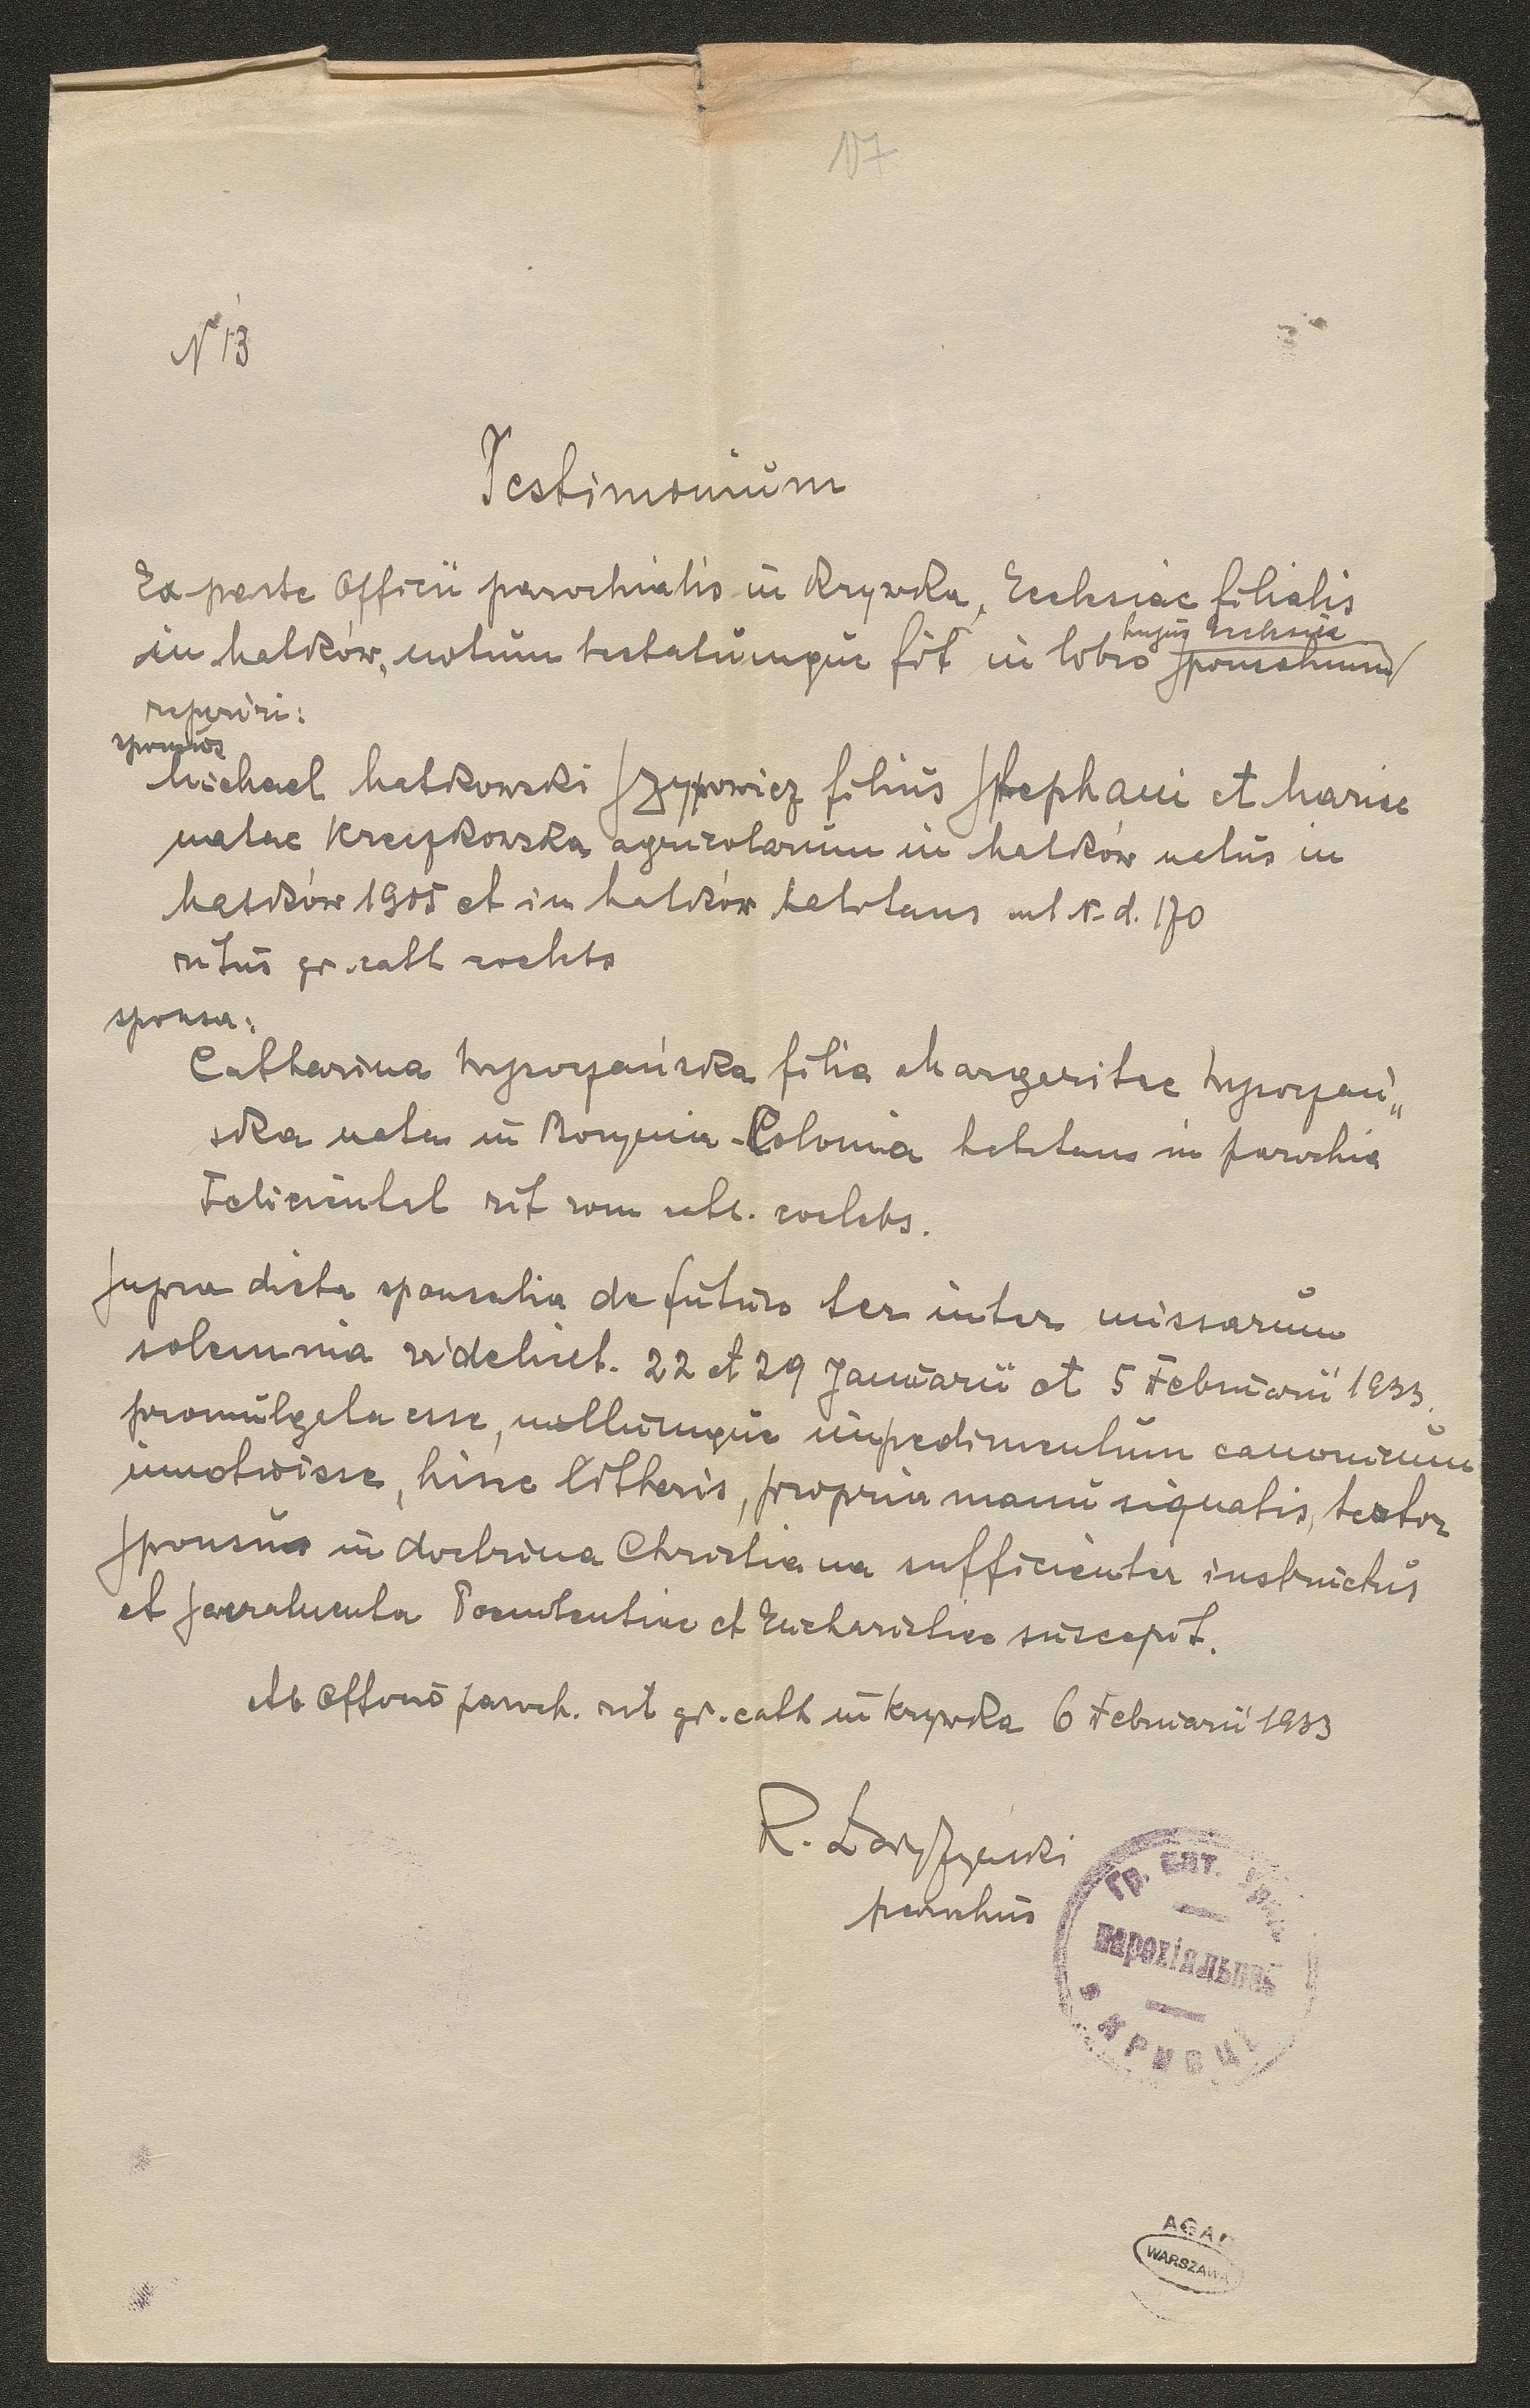 107
N 13
Testimonium
Ex parte Officii parochialis in Krywka, Ecclesiae filialis
hujus Ecclesiae
in Matków, notum testatumque fit in libro sponsalium
reperiri:
sponsus
Michael Matkowski Szypowicz filius Stephani et Mariae
natae Kreuzkowska agricolarum in Matków natus in
Matków 1905 et in Matków habitans sub N. d. 170
ritus gr. cath coelebs
sponsa:
Catharina Wysoczańska filia Margaritae Wysoczań„
ska nata in Borynia-Colonia habitans in parochia
Felicienthal rit rom cath. coelebs.
Supra dicta sponsalia de futuro ter inter missarum
solemnia videlicet. 22 et 29 Januarii et 5 Februarii 1933.
promulgata esse, nullumque impedimentum canonicum
innotuisse, hisce litteris, propria manu signatis, testor
Sponsus in doctrina Christiana sufficienter instructus
et Sacramenta Poenitentiae et Eucharistiae suscepit.
Ab Officio paroch. rit gr. cath in Krywka 6 Februarii 1933
parochus
ГР. КАТ. УРЯД
парохіяльний
в КРИВЦІ
AGAD
WARSZAWA